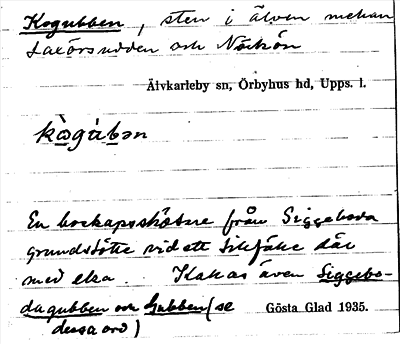 Kogubben, sten i älven mellan
Laxörsudden och Närkön
Älvkarleby sn, Örbyhus hd, Upps. l.
kògùbən
En bockapsskötare från Siggeboda
grundstötte vid ett silfiske där
med eka. Kallas även Siggebo-
dagubben och Gubben (se
dessa ord)
Gösta Glad 1935.